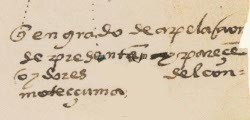 q̃ en grado de apelaçion
de presenta y pareçe
oydores del con
moteccuma